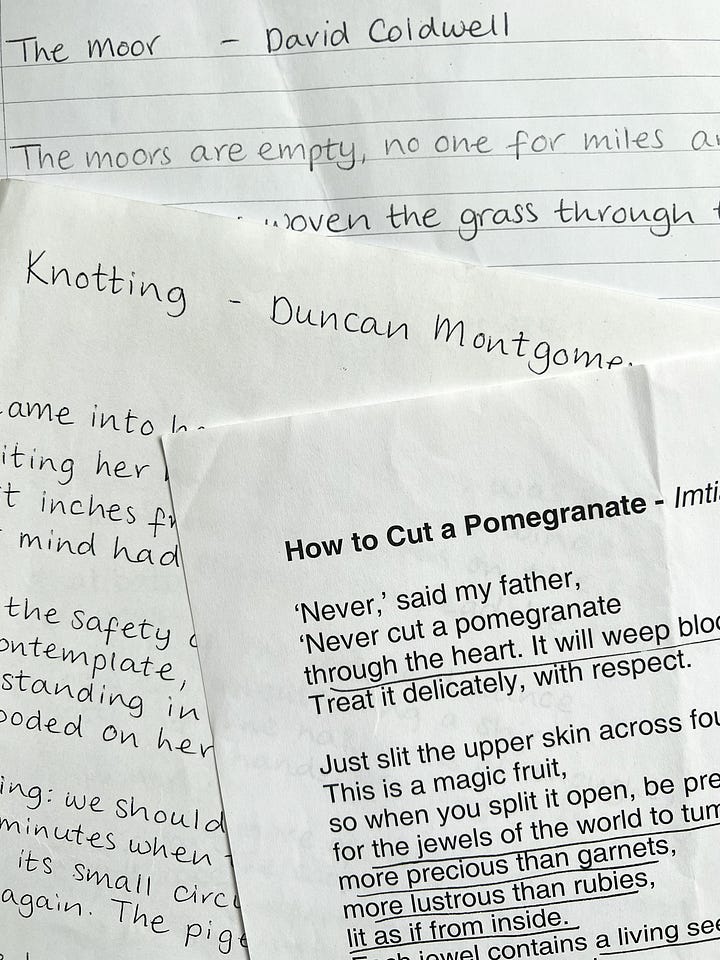 The moor - David Coldwell
The moors are empty, no one for miles
woven the grass through
Knotting - Duncan
into
her
inches
mind had
the safety
standing in
on her
we should
minutes when
its small
again. The
How to Cut a Pomegranate -
‘Never,’ said my father,
‘Never cut a pomegranate
through the heart. It will weep
Treat it delicately, with respect.
Just slit the upper skin across
This is a magic fruit,
so when you split it open, be
for the jewels of the world to
more precious than garnets,
more lustrous than rubies,
lit as if from inside.
jewel contains a living